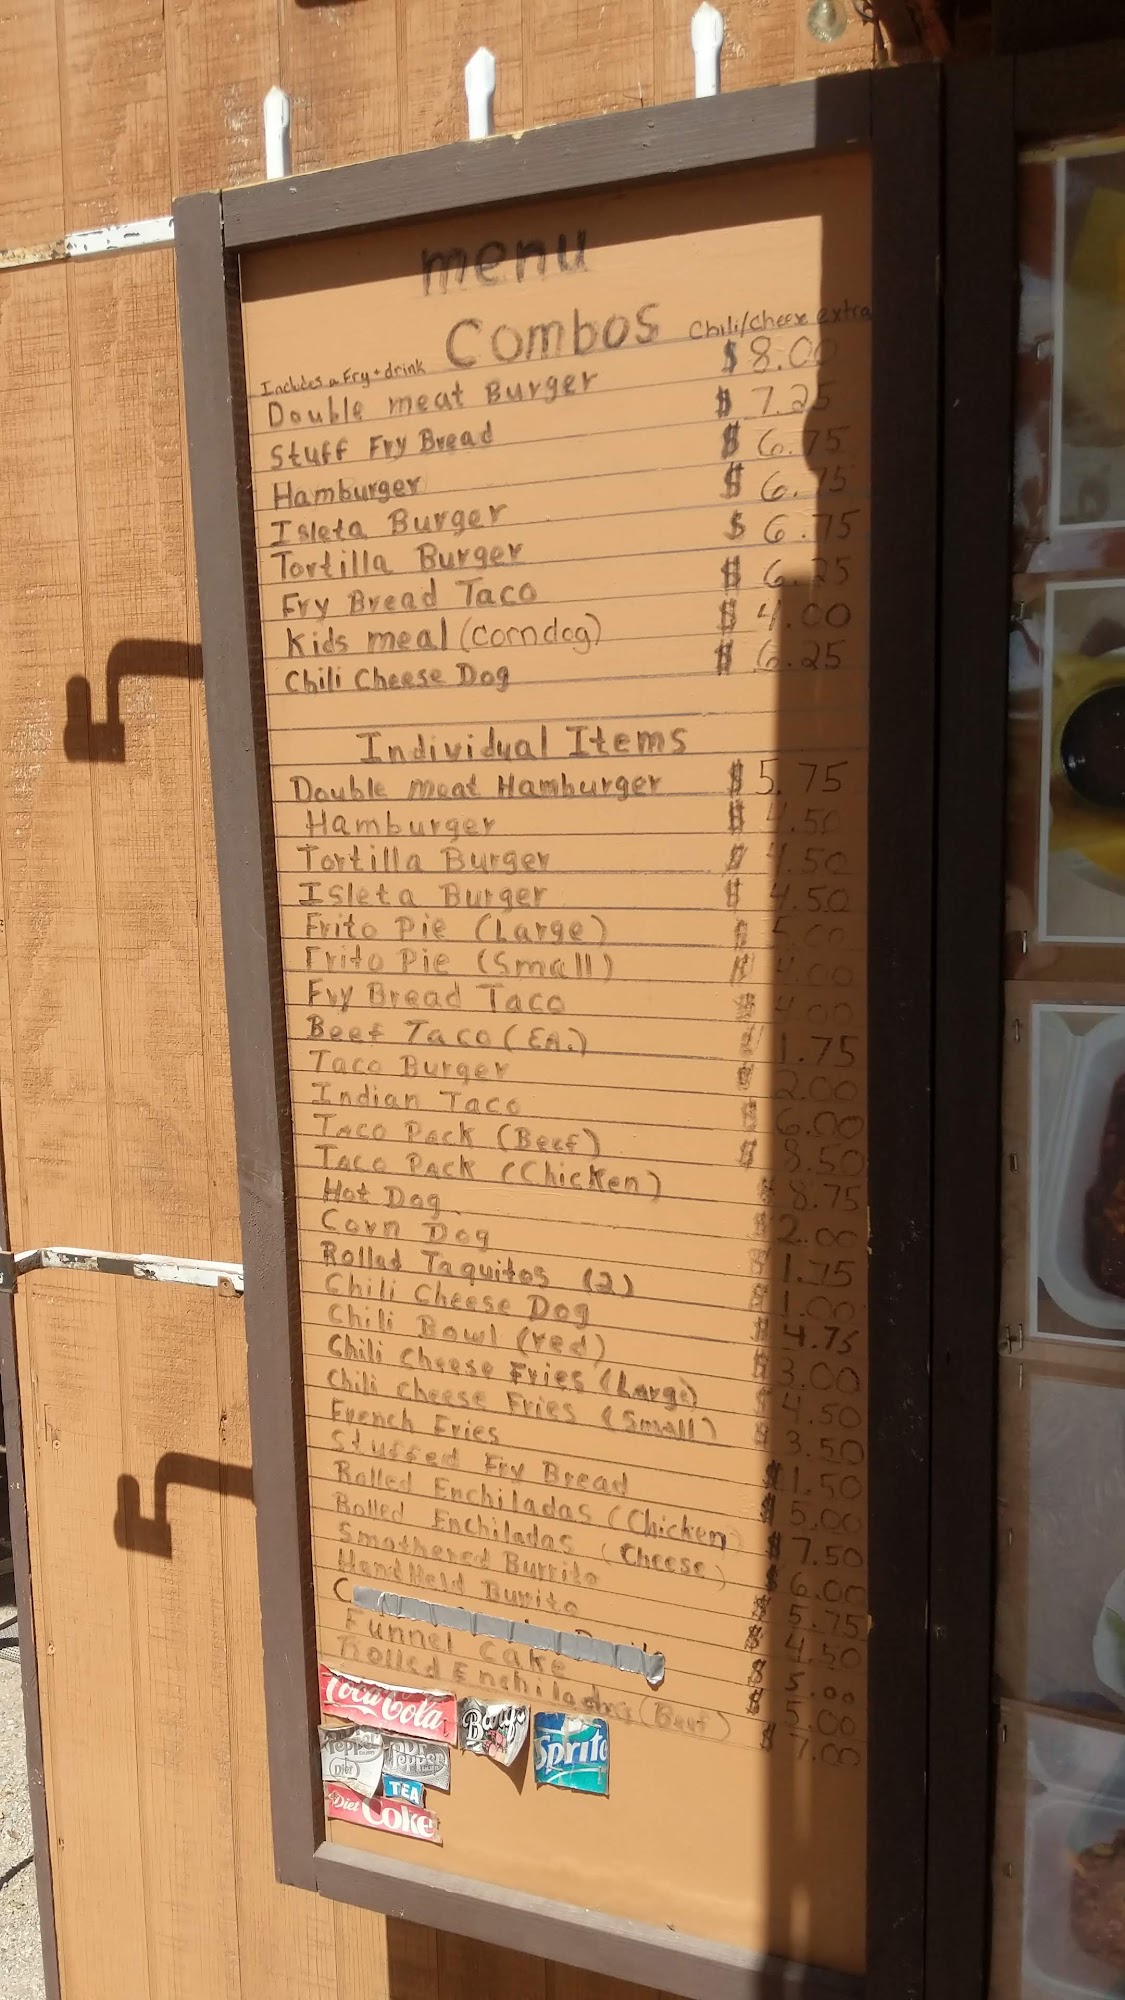 menu
Combos Chili/Cheese extra
Includes a Fry + drink
Double meat Burger $ 8.00
Stuff Fry Bread $ 7.25
Hamburger $ 6.75
Isleta Burger $ 6.75
Tortilla Burger $ 6.75
Fry Bread Taco $ 6.25
Kids meal (corndog) $ 4.00
Chili Cheese Dog $ 6.25
Individual Items
Double meat Hamburger $ 5.75
Hamburger $ 4.50
Tortilla Burger $ 4.50
Isleta Burger $ 4.50
Frito Pie (Large) $ 5.00
Frito Pie (Small) $ 4.00
Fry Bread Taco $ 4.00
Beef Taco (EA.) $ 1.75
Taco Burger $ 2.00
Indian Taco $ 6.00
Taco Pack (Beef) $ 8.50
Taco Pack (Chicken) $ 8.75
Hot Dog $ 2.00
Corn Dog $ 1.75
Rolled Taquitos (2) $ 1.00
Chili Cheese Dog $ 4.75
Chili Bowl (red) $ 3.00
Chili Cheese Fries (Large) $ 4.50
Chili Cheese Fries (Small) $ 3.50
French Fries $ 1.50
Stuffed Fry Bread $ 5.00
Rolled Enchiladas (Chicken) $ 7.50
Rolled Enchiladas (Cheese) $ 6.00
Smothered Burrito $ 5.75
Hand Held Burrito $ 4.50
C $ 5.00
Funnel Cake $ 5.00
Rolled Enchiladas (Beef) $ 7.00
Coca Cola Barq's Sprite
Dr Pepper Diet Dr Pepper
TEA
Diet Coke